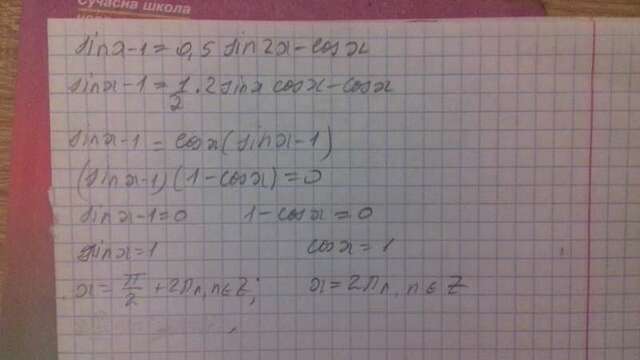 школа
sin x - 1 = 0,5 sin 2x - cos x
sin x - 1 = 1/2 · 2 sin x cos x - cos x
sin x - 1 = cos x (sin x - 1)
(sin x - 1) (1 - cos x) = 0
sin x - 1 = 0 1 - cos x = 0
sin x = 1 cos x = 1
x = π/2 + 2πn, n ∈ Z; x = 2πn, n ∈ Z